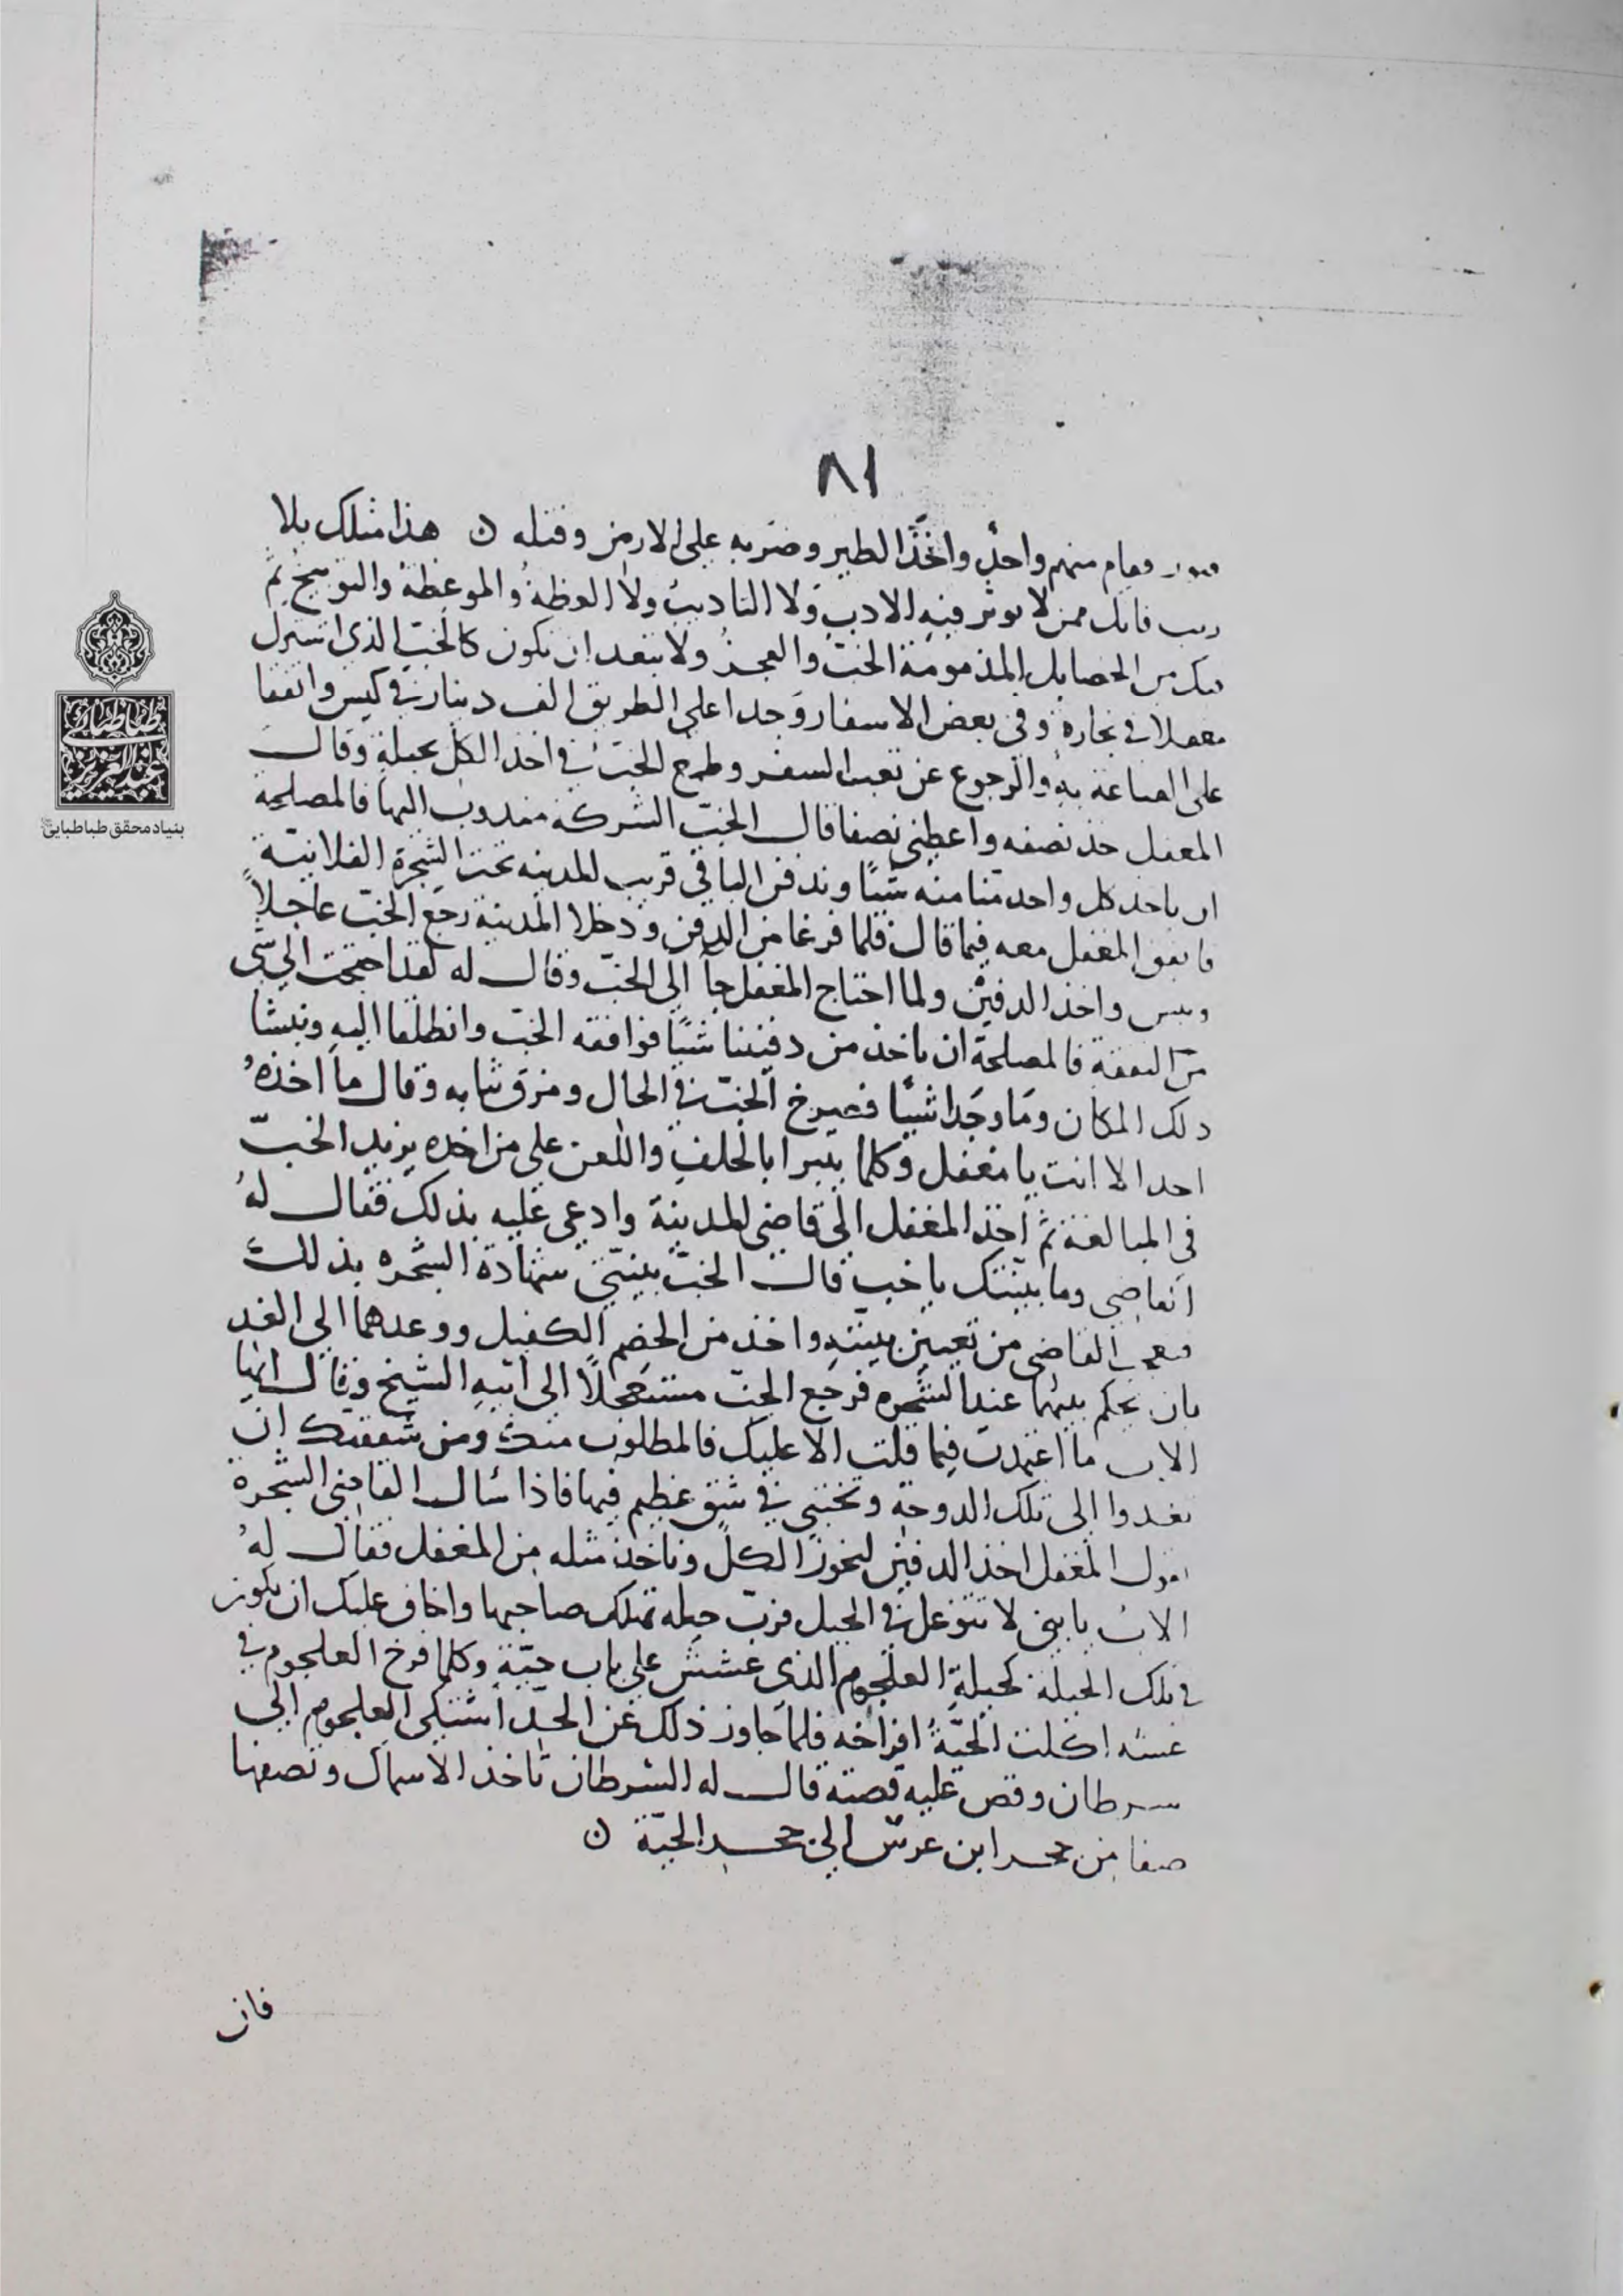 ٨١
فقام منهم واحد واخذ الطير وضربه على الارض وقتله ن هذا مثلك بلا
ريب فانك ممن لا يوثر فيه الادب ولا التاديب ولا العظة والموعظة والتوبيخ ثم
فيك من الخصايل المذمومة الخب والعجز ولا يبعد ان تكون كالخب الذى اشترك
مغفلا فى تجارة وفى بعض الاسفار وجدا على الطريق الف دينار فى كيس واتفقا
على القناعة به والرجوع عن تعب السفر وطمع الخب فى اخذ الكل بحيلة وقال
المغفل خذ نصفه واعطنى نصفا قال الخب الشركة مندوب اليها فالمصلحة
ان ياخذ كل واحد منا منه شيئا وندفن الباقى قريب المدينه تحت الشجرة الفلانية
فاتفق المغفل معه فيما قال فلما فرغا من الدفن ودخلا المدينة رجع الخب عاجلا
ونبش واخذ الدفين ولما احتاج المغفل جا الى الخب وقال له لقد احتجت الى شى
من النفقة فالمصلحة ان ناخذ من دفيننا شيئا فوافقه الخب وانطلقا اليه ونبشا
ذلك المكان وما وجدا شيئا فصرخ الخب فى الحال ومزق ثيابه وقال ما اخذه
احد الا انت يا مغفل وكلما يتبرا بالحلف واللعن على من اخذه يزيد الخب
فى المبالغة ثم اخذ المغفل الى قاضى المدينة وادعى عليه بذلك فقال له
القاضى وما بينتك يا خب قال الخب بينتى شهادة الشجره بذلك
فعجب القاضى من تعيين بينته واخذ من الخصم الكفيل ووعدهما الى الغد
بان يحكم بينهما عند الشجره فرجع الخب مستعجلا الى ابيه الشيخ وقال ايها
الاب ما اعتمدت فيما قلت الا عليك فالمطلوب منك ومن شفقتك ان
تغدوا الى تلك الدوحة وتختبى فى شق عظيم فيها فاذا سال القاضى الشجرة
تقول المغفل اخذ الدفين لنحوز الكل وناخذ مثله من المغفل فقال له
الاب يا بنى لا تتوغل فى الحيل فرب حيله تهلك صاحبها واخاف عليك ان تكون
فى تلك الحيلة كحيلة العلجوم الذى عشش على باب حية وكلما فرخ العلجوم فى
عشه اكلت الحية افراخه فلما جاوز ذلك عن الحد اشتكى العلجوم الى
سرطان وقص عليه قصته قال له السرطان تاخذ الاسماك وتصفها
صفا من جحر ابن عرس الى جحر الحية ن
فان
طباطبائی
عبدالعزیز
بنیاد محقق طباطبایی